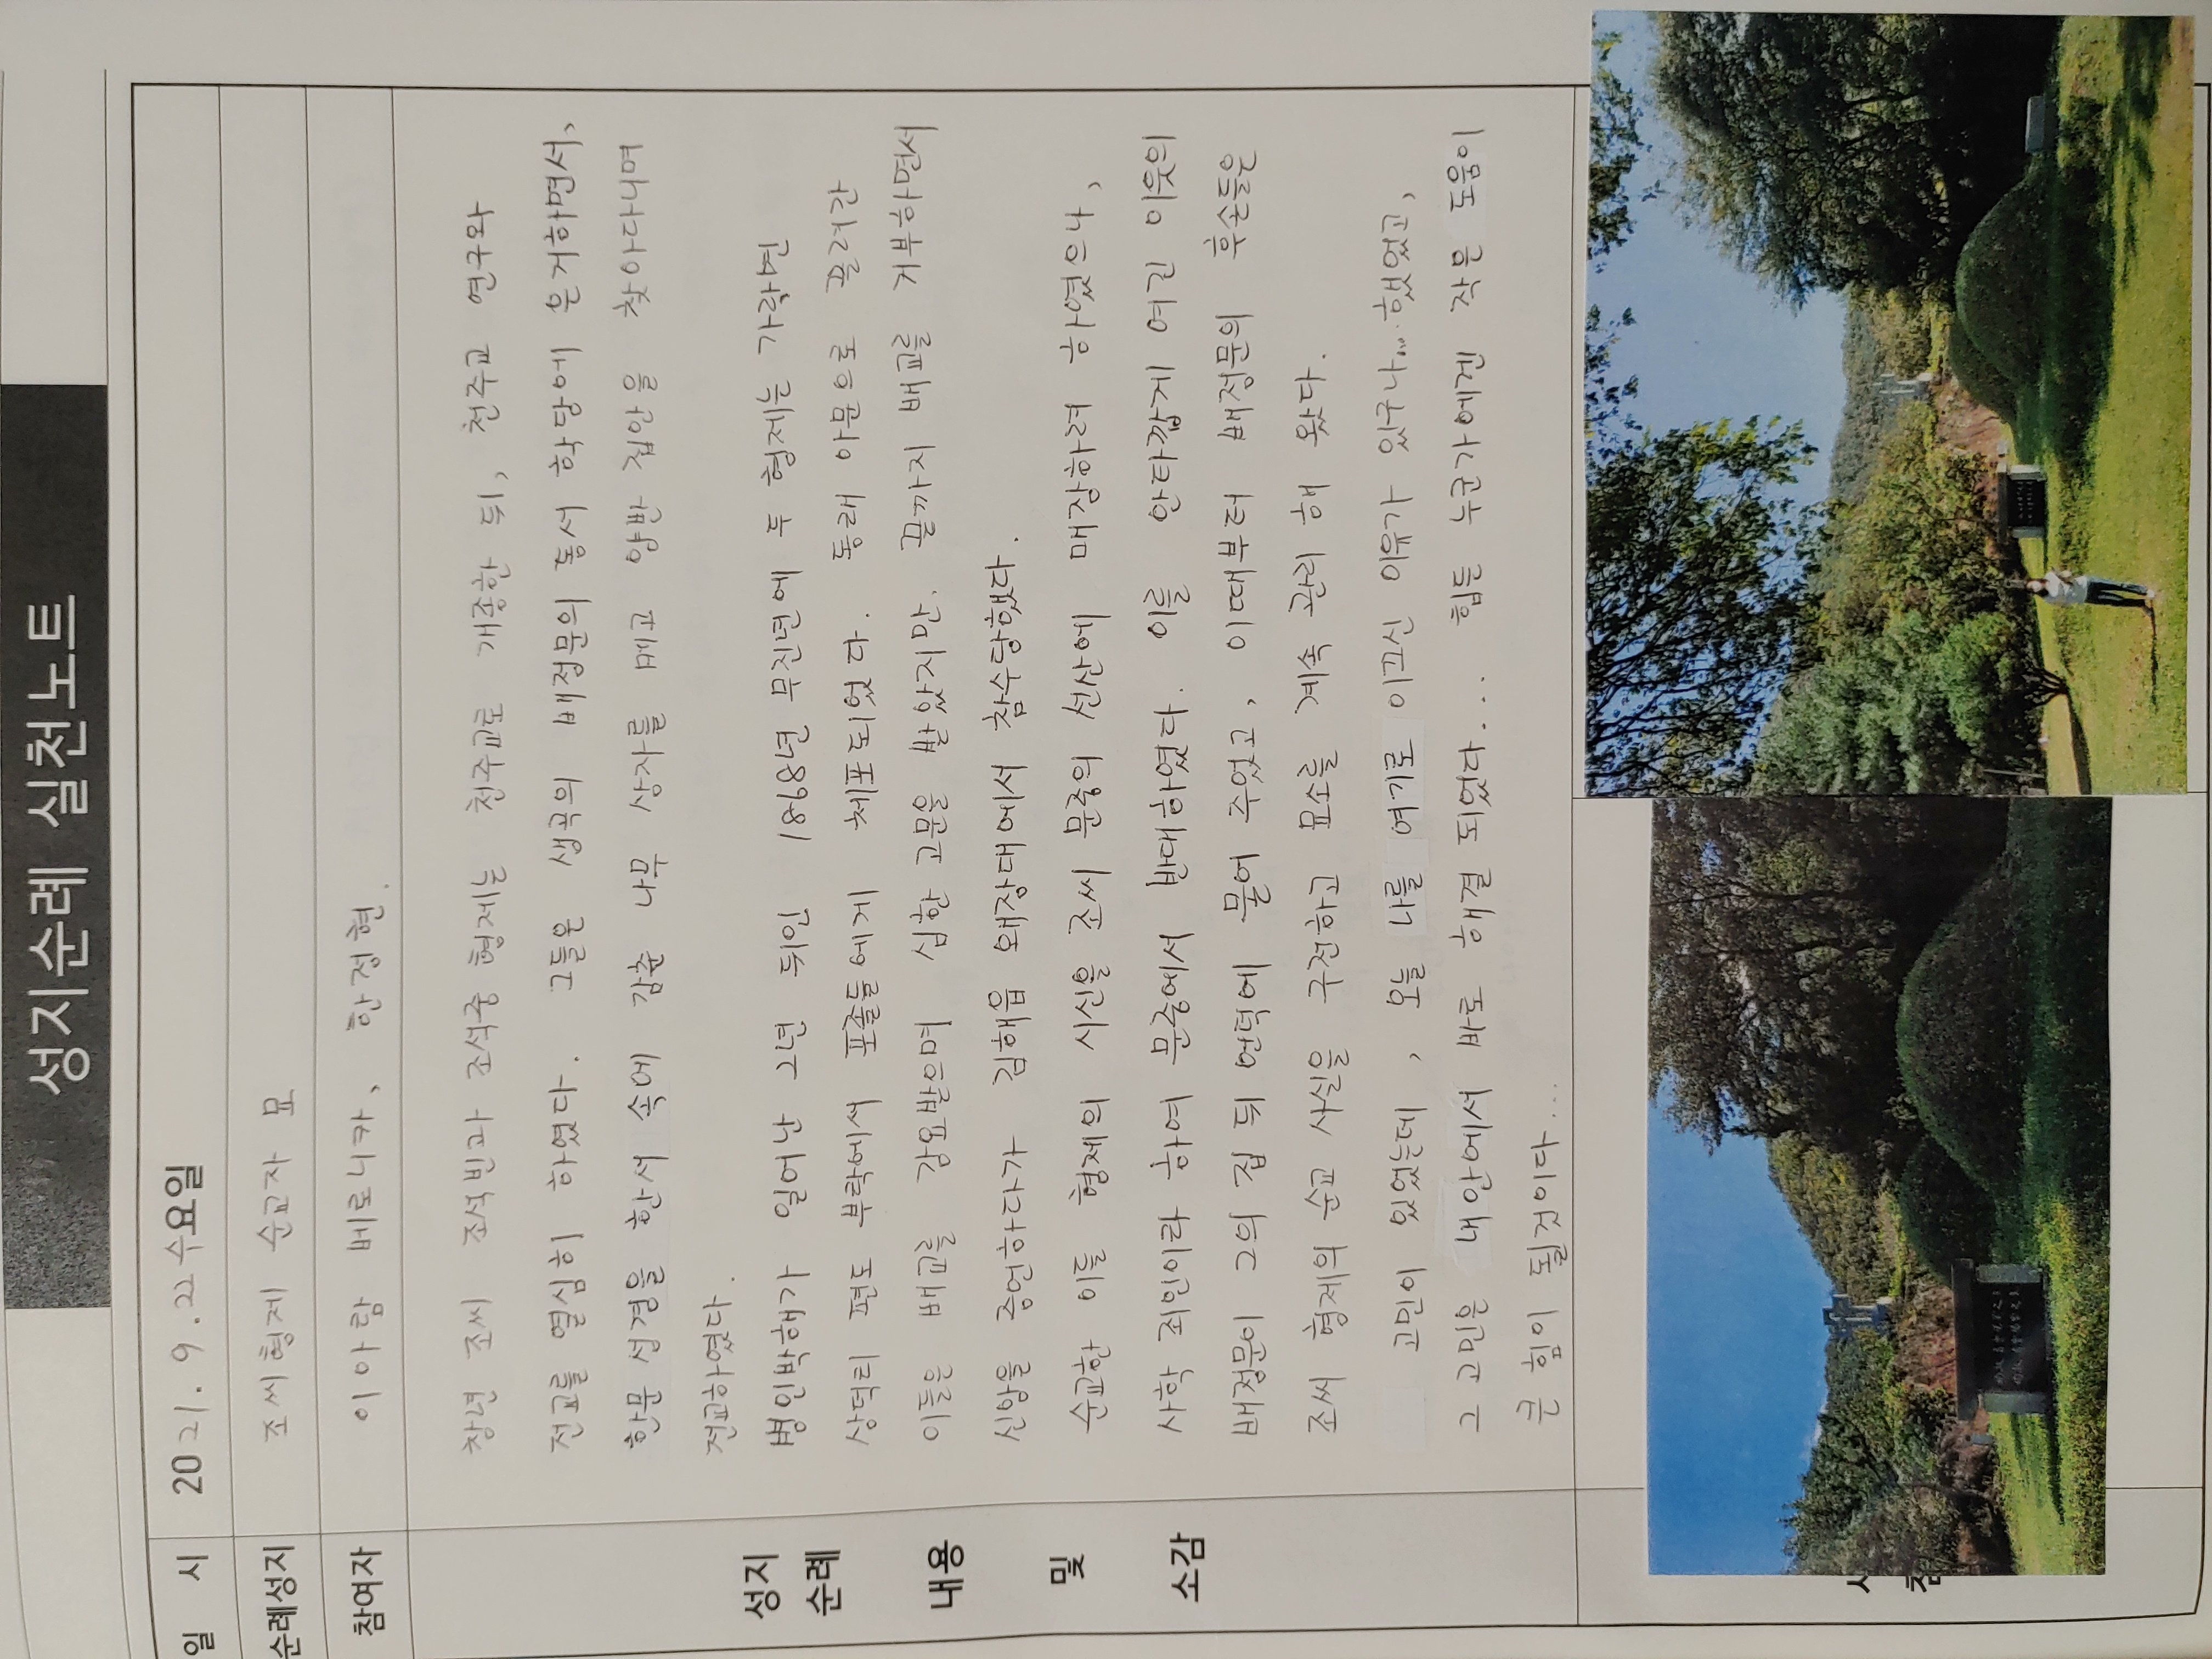 성지순례 실천노트
일 시 2021. 9. 22 수요일
순례성지 조씨형제 순교자 묘
참여자 이아람 베로니카, 한정현.
성지
순례
내용
및
소감
창녕 조씨 조석빈과 조석증 형제는 천주교로 개종한 뒤, 천주교 연구와
전교를 열심히 하였다. 그들은 생곡의 배정문의 동서 학당에 은거하면서,
한문 성경을 한서 속에 감춘 나무 상자를 메고 양반 집안을 찾아다니며
전교하였다.
병인박해가 일어난 2년 뒤인 1868년 무진년에 두 형제는 가락면
상덕리 편도 부락에서 포졸들에게 체포되었다. 동래 아문으로 끌려간
이들은 배교를 강요받으며 심한 고문을 받았지만, 끝까지 배교를 거부하면서
신앙을 증언하다가 김해읍 왜장대에서 참수당했다.
순교한 이들 형제의 시신을 조씨 문중의 선산에 매장하려 하였으나,
사학 죄인이라 하여 문중에서 반대하였다. 이를 안타깝게 여긴 이웃의
배정문이 그의 집 뒤 언덕에 묻어 주었고, 이때부터 배정문의 후손들은
조씨 형제의 순교 사실을 구전하고 묘소를 계속 관리 해 왔다.
고민이 있었는데, 오늘 나를 여기로 이끄신 이유가 있구나... 했었고,
그 고민은 내 안에서 바로 해결 되었다... 힘든 누군가에겐 작은 도움이
큰 힘이 될것이다...